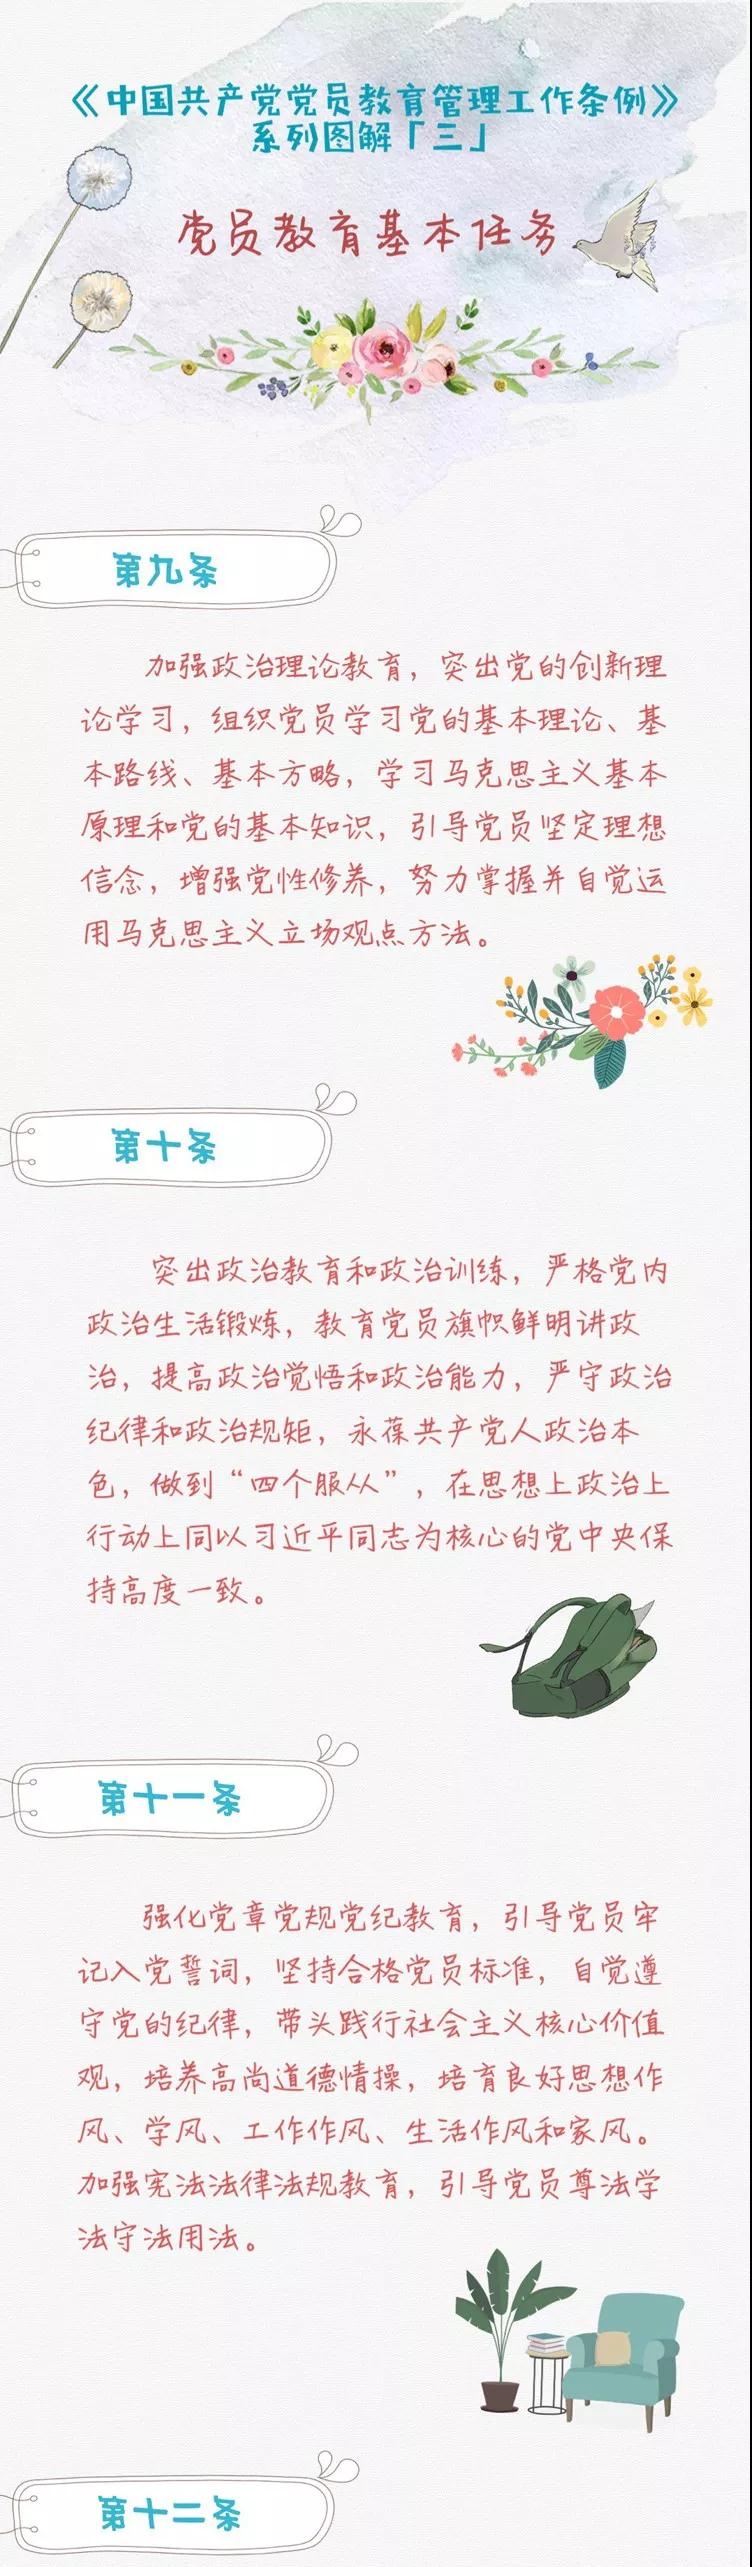 《中国共产党党员教育管理工作条例》
系列图解「三」
党员教育基本任务
第九条
加强政治理论教育，突出党的创新理
论学习，组织党员学习党的基本理论、基
本路线、基本方略，学习马克思主义基本
原理和党的基本知识，引导党员坚定理想
信念，增强党性修养，努力掌握并自觉运
用马克思主义立场观点方法。
第十条
突出政治教育和政治训练，严格党内
政治生活锻炼，教育党员旗帜鲜明讲政
治，提高政治觉悟和政治能力，严守政治
纪律和政治规矩，永葆共产党人政治本
色，做到“四个服从”，在思想上政治上
行动上同以习近平同志为核心的党中央保
持高度一致。
第十一条
强化党章党规党纪教育，引导党员牢
记入党誓词，坚持合格党员标准，自觉遵
守党的纪律，带头践行社会主义核心价值
观，培养高尚道德情操，培育良好思想作
风、学风、工作作风、生活作风和家风。
加强宪法法律法规教育，引导党员尊法学
法守法用法。
第十二条